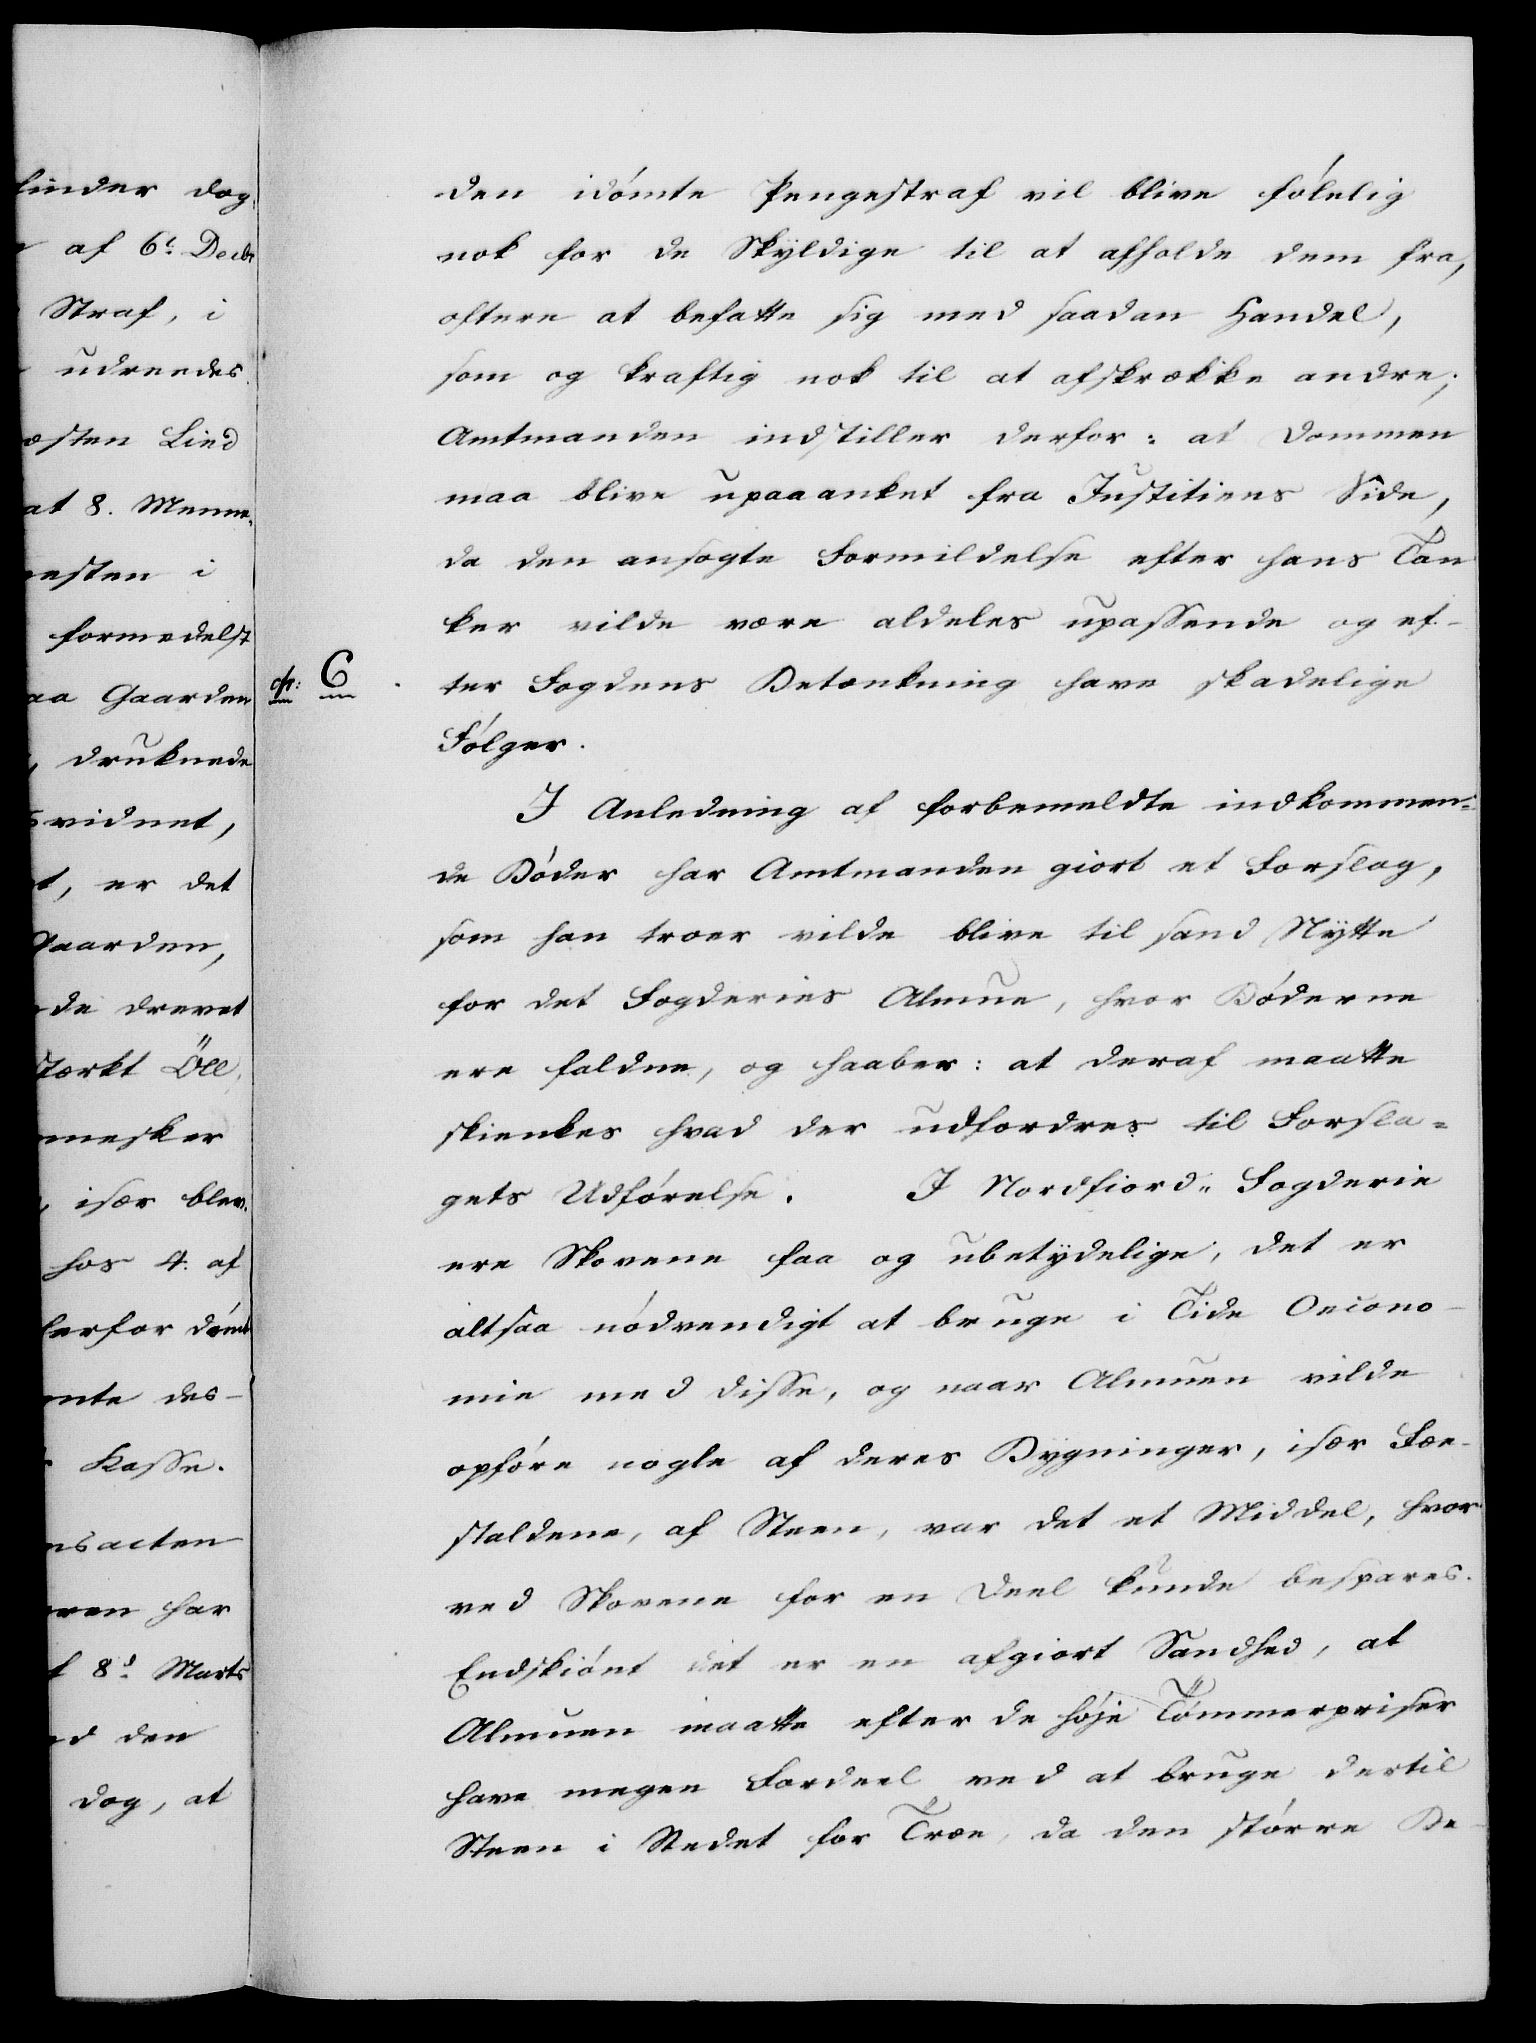 finder dog
af 6t Decbr
Straf, i
udreedes
østen Lied
at 8. Menne-
esten i
formedelst
aa Gaarden
, druknede
svidnet,
t, er det
Gaarden,
de drevet
stærkt Öll,
mesker
, især blev
hos 4. af
derfor dömt
mte des-
Kasse.
nsacten
ren har
f 8d Marts
d den
dog, at
den idómte Pengestraf vil blive fólelig
nok for de Skyldige til at afholde dem fra,
oftere at befatte sig med saadan Handel,
som og kraftig nok til at afskrække andre;
Amtmanden indstiller derfor: at Dommen
maa blive upaaanket fra Justitiens Side,
da den ansøgte Formildelse efter hans Tan
ker vilde være aldeles upassende og ef-
C
ter Fogdens Betænkning have skadelige
Fólger.
I Anledning af forbemeldte indkommen-
de Bóder har Amtmanden giort et Forslag,
som han troer vilde blive til sand Nytte
for det Fogderies Almue, hvor Bóderne
ere faldne, og haaber: at deraf maatte
skienkes hvad der udfordres til Forsla-
gets Udfórelse. I Nordfiord-Fogderie
ere Skovene faa og ubetydelige, det er
altsaa nódvendigt at bruge i Tide Oecono-
mie med disse, og naar Almuen vilde
opfóre nogle af deres Bygninger, især Fæe-
staldene, af Steen, var det et Middel, hvor
ved Skovene for en Deel kunde bespares.
Endskiónt det er en afgiort Sandhed, at
Almuen maatte efter de hóje Tómmerpriser
have megen Fordeel ved at bruge dertil
Steen i Stedet for Træe, da den stórre Be-